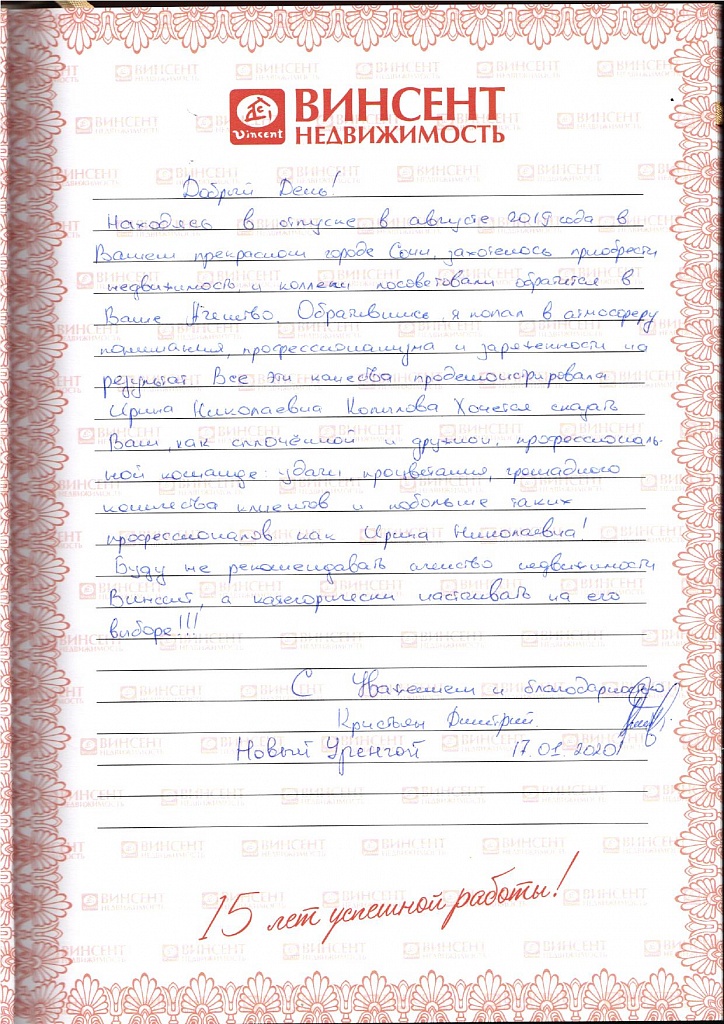 Vincent
ВИНСЕНТ
НЕДВИЖИМОСТЬ
Добрый День!
Находясь в отпуске в августе 2019 года в
Вашем прекрасном городе Сочи, захотелось приобрести
недвижимость, и коллеги посоветовали обратится в
Ваше Агенство. Обратившись, я попал в атмосферу
понимания, профессионализма и заряженности на
результат. Все эти качества продемонстрировала
Ирина Николаевна Копылова. Хочется сказать
Вам, как сплочённой и дружной, профессиональ-
ной команде: удачи, процветания, громадного
количества клиентов и побольше таких
профессионалов как Ирина Николаевна!
Буду не рекомендавать агенство недвижимости
Винсент, а категорически настаивать на его
выборе!!!
С Уважением и благодарностью
Кристьян Дмитрий.
Новый Уренгой 17.01.2020
15 лет успешной работы!